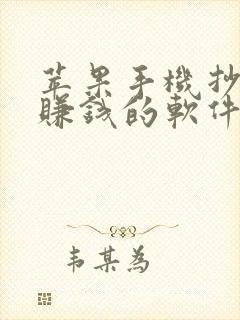 苹果手機抄
賺錢的軟件
韦某為